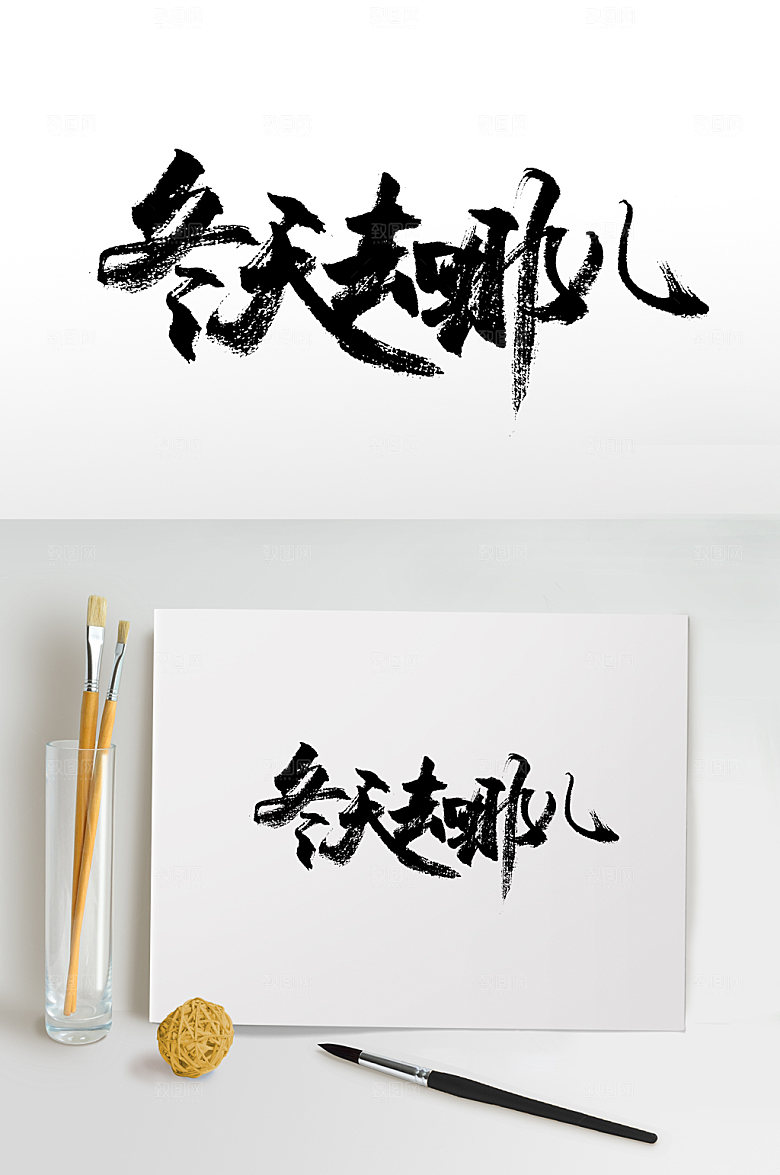 冬天去哪儿
冬天去哪儿